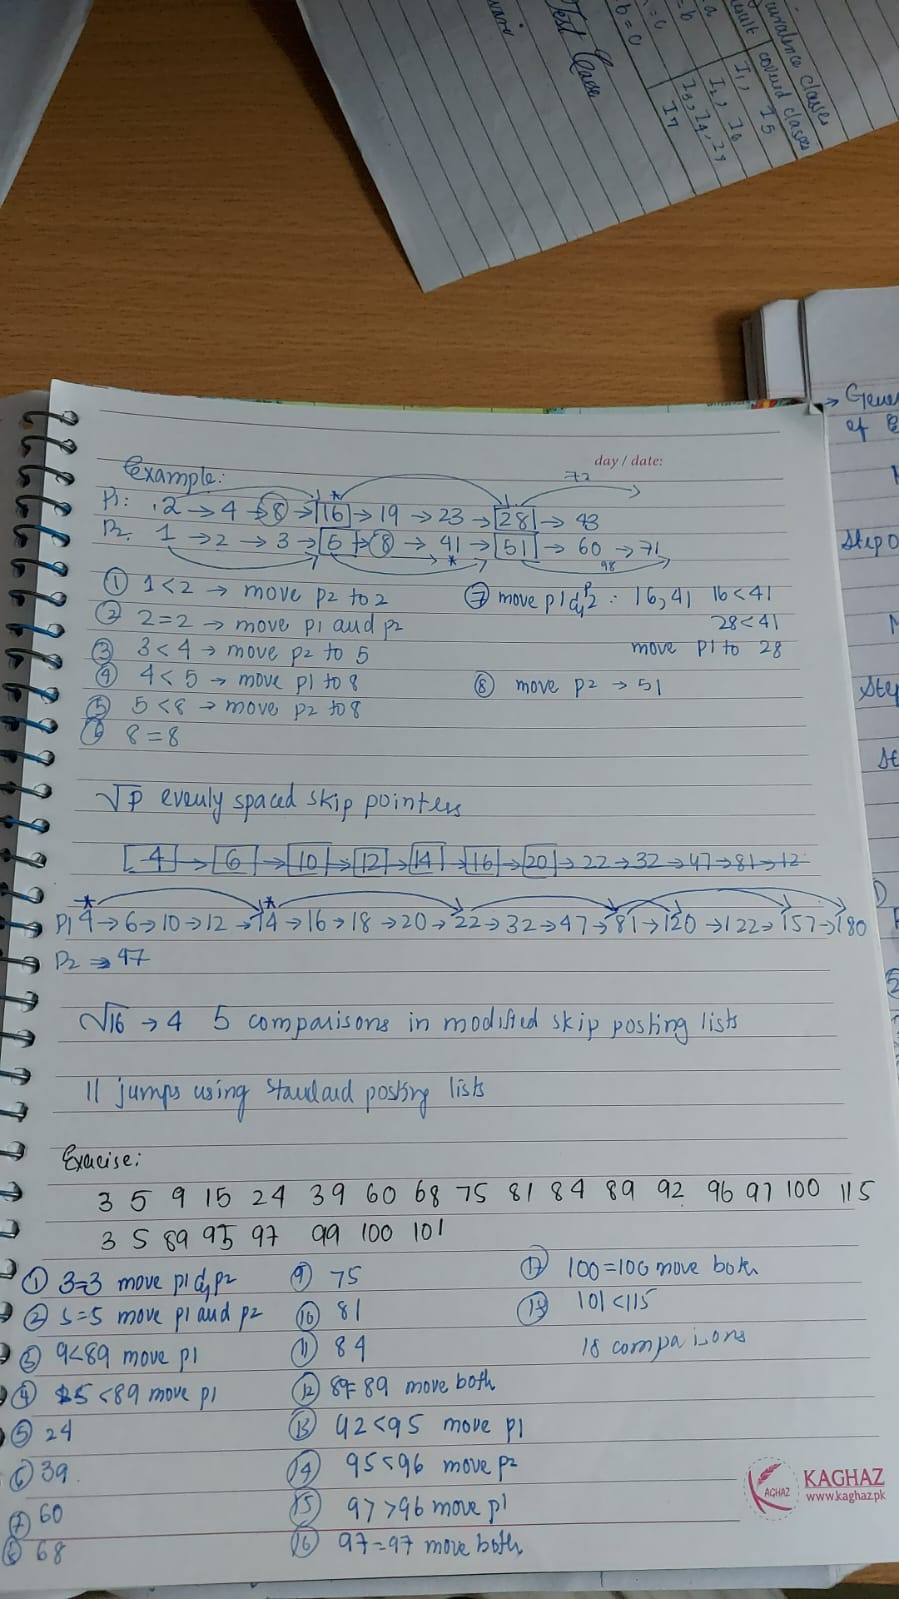 uivalence classes
covered classes
esult
I1, I5
I2, I6
I3, I4, 29
I7
b = c
Test Case
→ Gene
of E
Step
Step
day / date:
Example:
72
P1: 2 → 4 → 8 → 16 → 19 → 23 → 28 → 43
P2. 1 → 2 → 3 → 5 → 8 → 41 → 51 → 60 → 71
98
① 1 < 2 → move p2 to 2
② 2 = 2 → move p1 and p2
③ 3 < 4 → move p2 to 5
④ 4 < 5 → move p1 to 8
⑤ 5 < 8 → move p2 to 8
⑥ 8 = 8
⑦ move p1 & p2 : 16, 41 16 < 41
28 < 41
move p1 to 28
⑧ move p2 → 51
√P evenly spaced skip pointers
4 → 6 → 10 → 12 → 14 → 16 → 20 → 22 → 32 → 47 → 81 → 12
P1 4 → 6 → 10 → 12 → 14 → 16 → 18 → 20 → 22 → 32 → 47 → 81 → 120 → 122 → 157 → 180
P2 → 47
√16 → 4 5 comparisons in modified skip posting lists
11 jumps using standard posting lists
Exercise:
3 5 9 15 24 39 60 68 75 81 84 89 92 96 97 100 115
3 5 89 95 97 99 100 101
① 3=3 move p1 & p2
② 5=5 move p1 and p2
③ 9<89 move p1
④ 15<89 move p1
⑤ 24
⑥ 39
⑦ 60
⑧ 68
⑨ 75
⑩ 81
⑪ 84
⑫ 89=89 move both
⑬ 92<95 move p1
⑭ 95<96 move p2
⑮ 97>96 move p1
⑯ 97=97 move both
⑰ 100=100 move both
⑱ 101<115
18 comparisons
KAGHAZ
KAGHAZ
www.kaghaz.pk